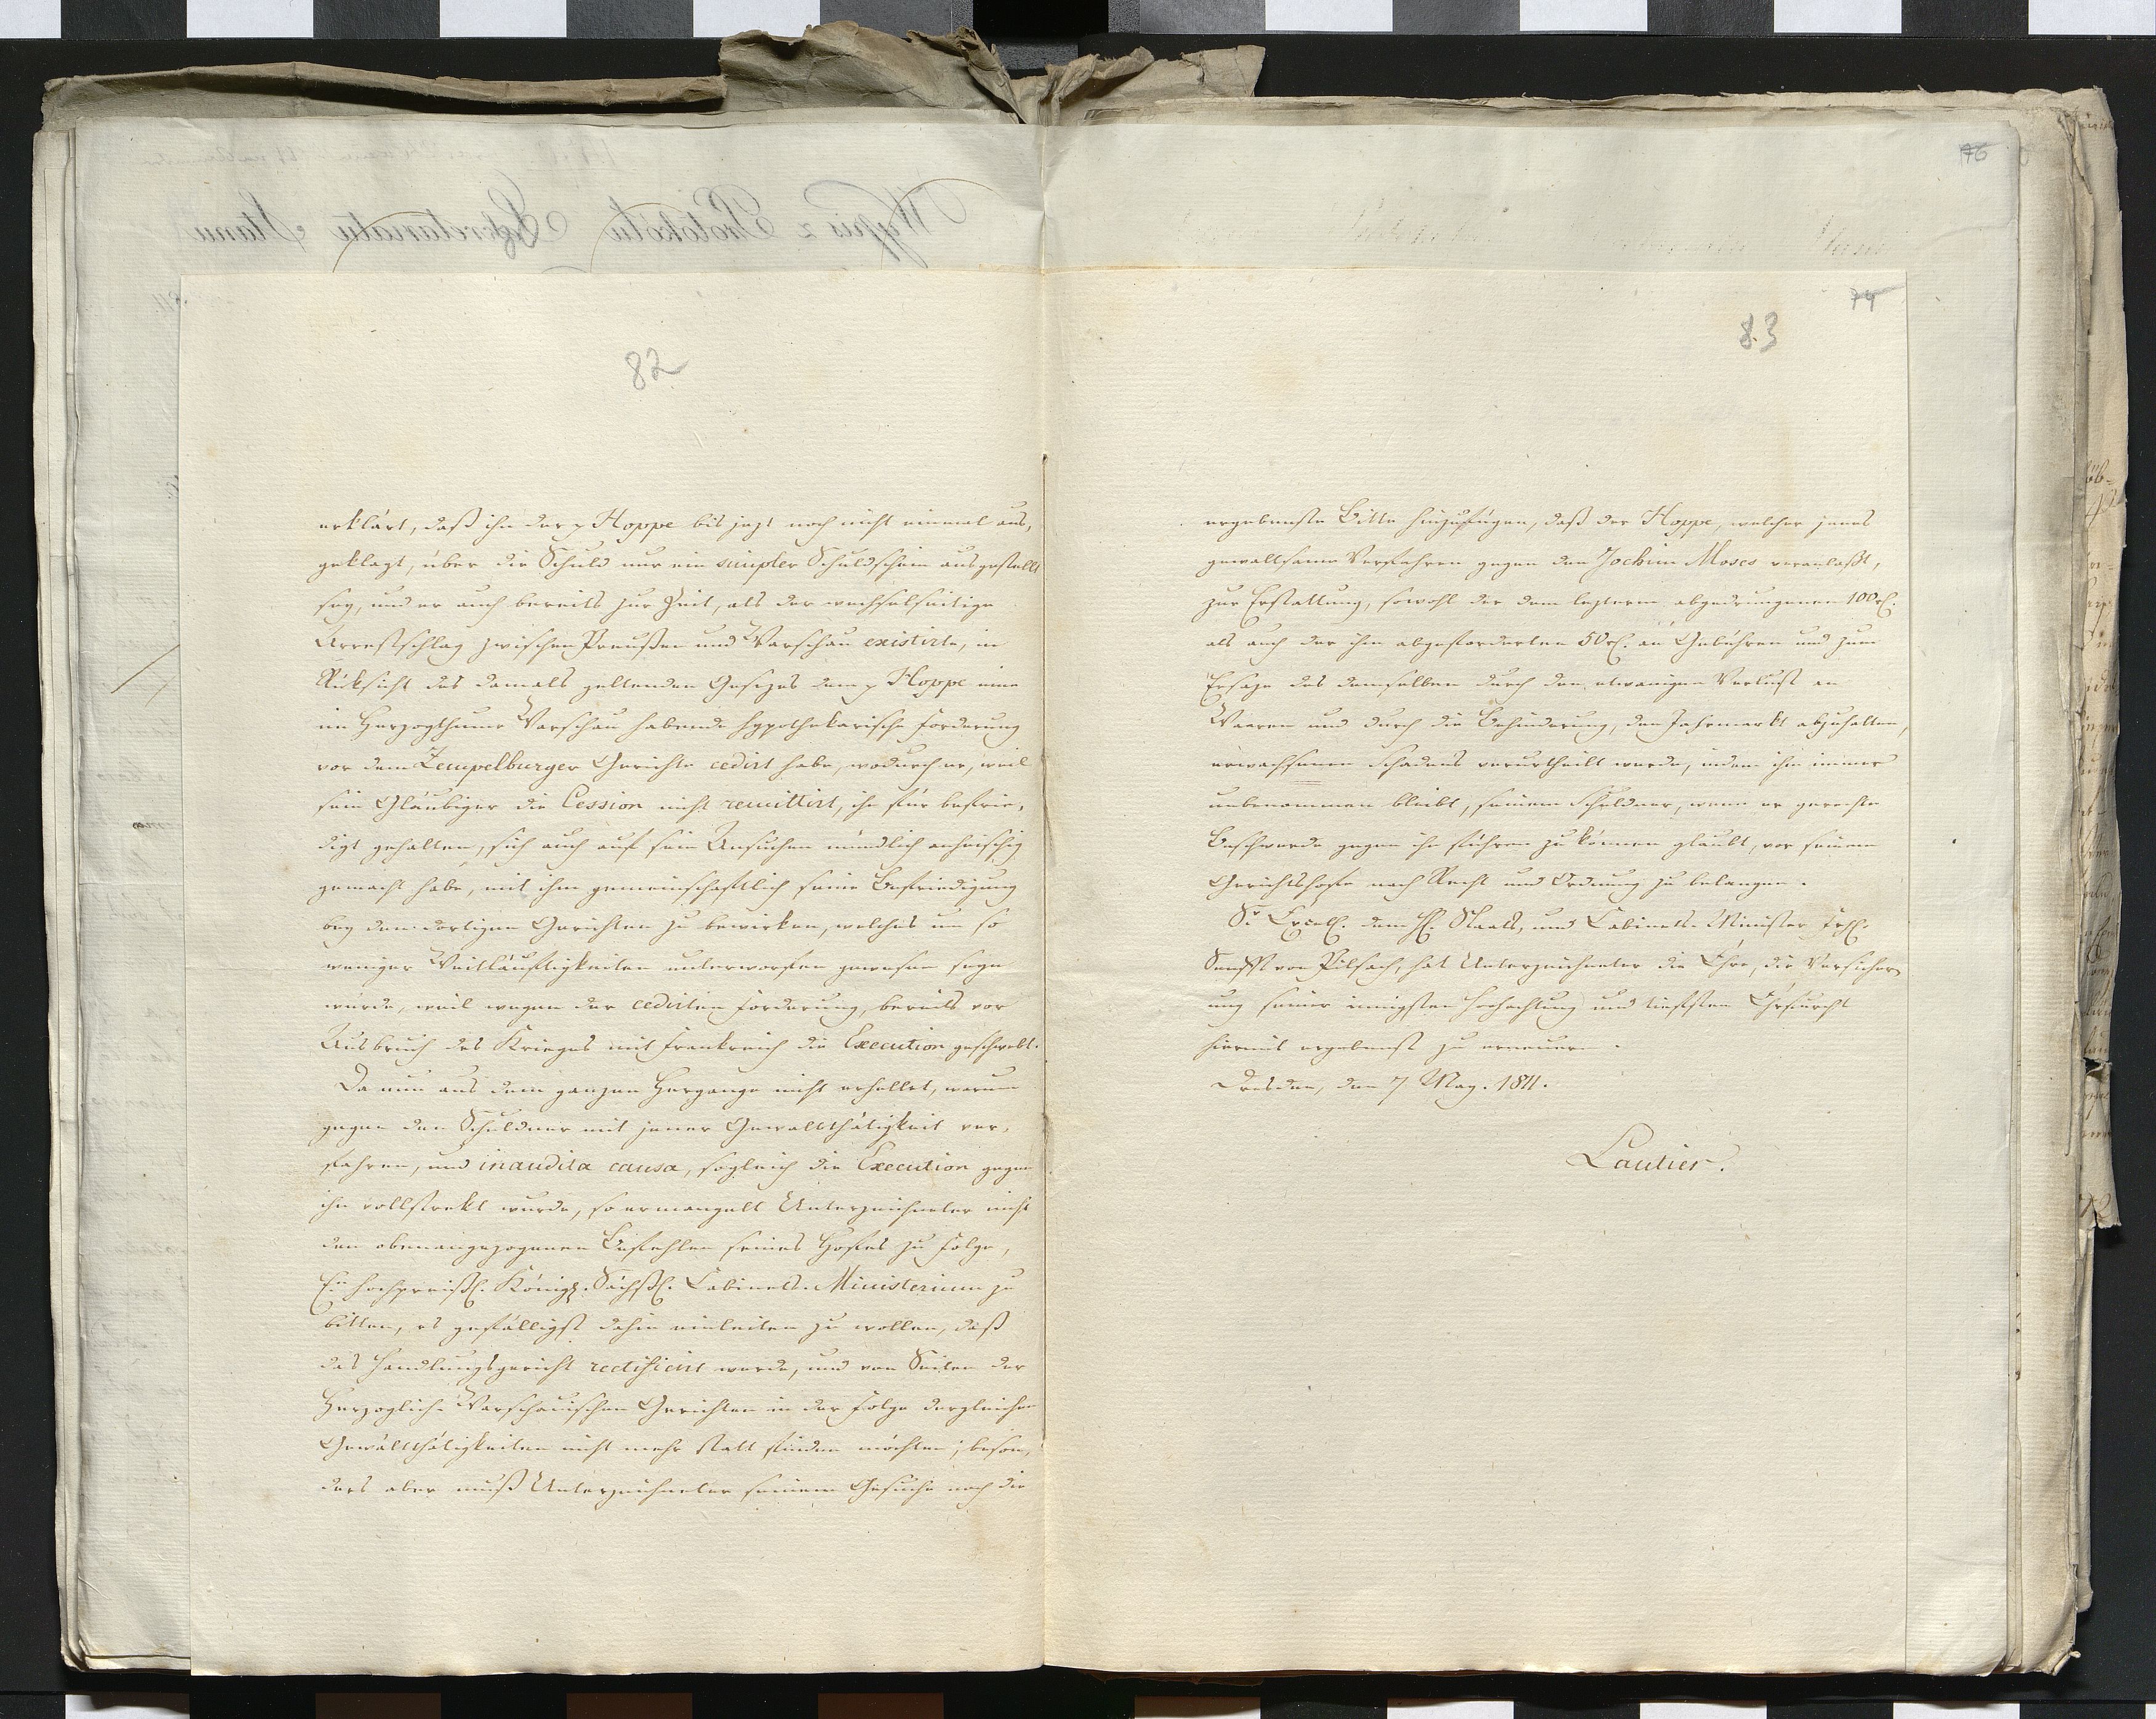 76
82
erklärt, daß ihn der p Hoppe bis jezt noch nicht einmal aus,
geklagt, über die Schuld nur ein simpler Schuldschein ausgestellt
sey, und er auch bereits zur Zeit, als der wechselseitige
Arrestschlag zwischen Preußen und Warschau existirte, in
Rüksicht des damals geltenden Gesezes dem p Hoppe eine
im Herzogthume Warschau habende hypothekarische Forderung
vor dem Zempelburger Gerichte cedirt habe, wodurch er, weil
sein Gläubiger die Cession nicht remittirt, ihn für befrie,
digt gehalten, sich auch auf sein Ansuchen mündlich anheischig
gemacht habe, mit ihm gemeinschaftlich seine Befriedigung
bey den dortigen Gerichten zu bewirken, welches um so
weniger Weitläuftigkeiten unterworfen gewesen seyn
würde, weil wegen der cedirten Forderung, bereits vor
Ausbruch des Krieges mit Frankreich die Execution geschwebt.
Da nun aus dem ganzen Hergange nicht erhellet, warum
gegen den Schuldner mit jener Gewaltthätigkeit ver,
fahren, und inaudita causa, sogleich die Execution gegen
ihn vollstrekt wurde, so ermangelt Unterzeichneter nicht
den obenangezogenen Befehlen seines Hofes zu Folge,
E. hochpreißl. Königl. Sächßl. Cabinets-Ministerium zu
bitten, es gefälligst dahin einleiten zu wollen, daß
das Handlungsgericht rectificirt werde, und von Seiten der
Herzoglich-Warschauischen Gerichten in der Folge dergleichen
Gewaltthätigkeiten nicht mehr statt finden möchten; beson,
ders aber muß Unterzeichneter seinem Gesuche noch die
74
83
ergebenste Bitte hinzufügen, daß der Hoppe, welcher jenes
gewaltsame Verfahren gegen den Jochim Moses veranlaßt,
zur Erstattung, sowohl der dem leztern abgedrungenen 100 rl.
als auch der ihm abgeforderten 50 rl. an Gebühren und zum
Ersaze des demselben durch den etwanigen Verlust an
Waaren und durch die Behinderung, den Jahrmarkt abzuhalten,
erwachsenen Schadens verurtheilt werde, indem ihm immer
unbenommen bleibt, seinem Schuldner, wenn er gerechte
Beschwerde gegen ihn führen zu können glaubt, vor seinem
Gerichtshofe nach Recht und Ordnung zu belangen.
Sr Excell. dem H. Staats, und Cabinets-Minister Frh.
Senfft von Pilsach, hat Unterzeichneter die Ehre, die Versicher
ung seiner innigsten Hochachtung und tiefsten Ehrfurcht
hiermit ergebenst zu erneuern.
Dresden, den 7 May. 1811.
Lautier.
Wypis z Protokołu Sekretariatu Stanu